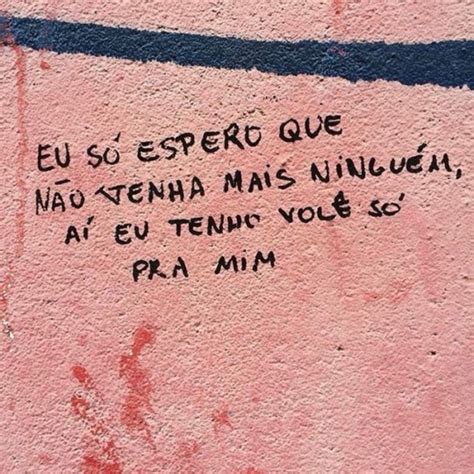 EU SÓ ESPERO QUE
NÃO TENHA MAIS NINGUÉM,
AÍ EU TENHO VOCÊ SÓ
PRA MIM